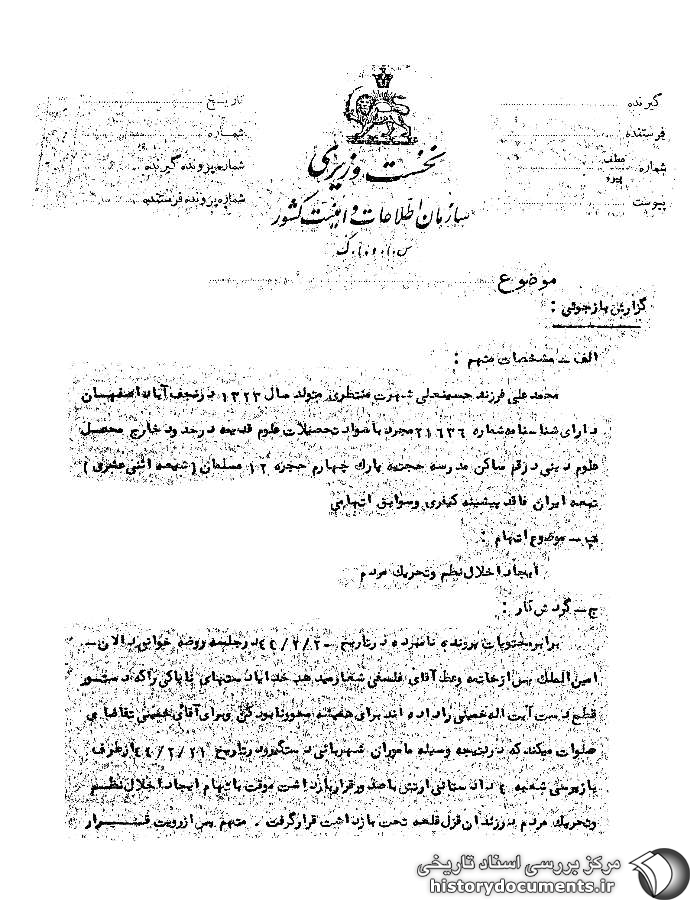 گیرنده
فرستنده
شماره عطف
پیرو
پیوست
تاریخ
شماره
شماره پرونده گیرنده
شماره پرونده فرستنده
نخست وزیری
سازمان اطلاعات و امنیت کشور
س.ا.و.ا.ک
موضوع
گزارش بازجوئی :
الف ــ مشخصات متهم :
محمد علی فرزند حسینعلی شهرت منتظری متولد سال ۱۳۲۳ در نجف آباد اصفهان
دارای شناسنامه شماره ۲۱۶۳۶ مجرد با سواد تحصیلات علوم قدیمه در حدود خارج محصل
علوم دینی در قم ساکن مدرسه حجتیه پارك چهارم حجره ۱۲ مسلمان (شیعه اثنی عشری)
تبعه ایران فاقد پیشینه کیفری وسوابق اتهامی
ب ــ موضوع اتهام :
ایجاد اخلال نظم وتحریك مردم
ج ــ گردش کار :
برابر محتویات پرونده نامبرده در تاریخ ۴۴/۲/۲۰ در جلسه روضه خوانی دالان ــ
امین الملك پس از خاتمه وعظ آقای فلسفی شعار میدهد خدایا دستهای ناپاکی را که دستور
قطع دست آیت اله خمینی را داده اند برای همیشه محو و نابود کن وبرای آقای خمینی تقاضای
صلوات میکند که در نتیجه وسیله ماموران شهربانی دستگیر و در تاریخ ۴۴/۲/۲۱ از طرف
بازپرسی شعبه ٤ دادستانی ارتش با صدور قرار بازداشت موقت باتهام ایجاد اخلال نظم
وتحریك مردم در زندان قزل قلعه تحت بازداشت قرار گرفت . متهم پس از رویت قرار
مرکز بررسی اسناد تاریخی
historydocuments.ir